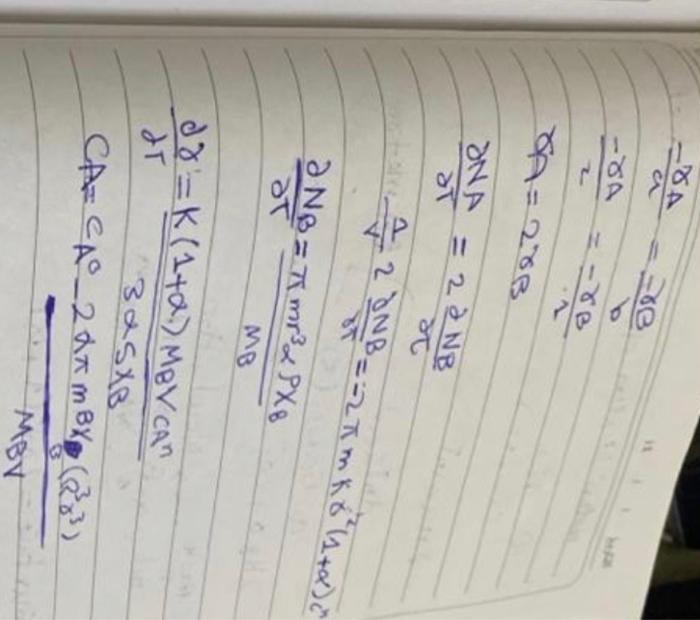 -γA/a = -γB/b
-γA/2 = -γB/1
γA = 2γB
∂NA/∂T = 2 ∂NB/∂t
1/V 2 ∂NB/∂T = -2πmKγ²(1+α)cⁿ
∂NB/∂T = πmr³αPXB/MB
dγ/dT = K(1+α)MBVCAⁿ/3αSXB
CA = CA° - 2απmBXB(R³γ³)/MBV